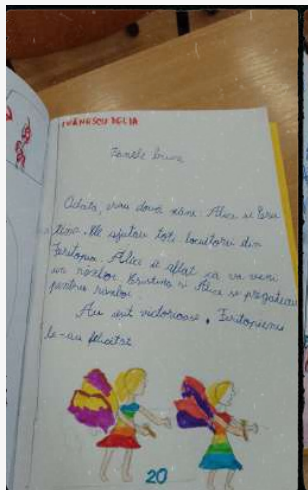 IVĂNESCU DELIA
Zânele bune
Odată, erau două zâne: Alice și Cris
tina. Ele ajutau toți locuitorii din
Zaritopia. Alice a aflat că va veni
un război. Cristina și Alice se pregăteau
pentru război.
Au ieșit victorioase. Zaritopienii
le-au felicitat
20